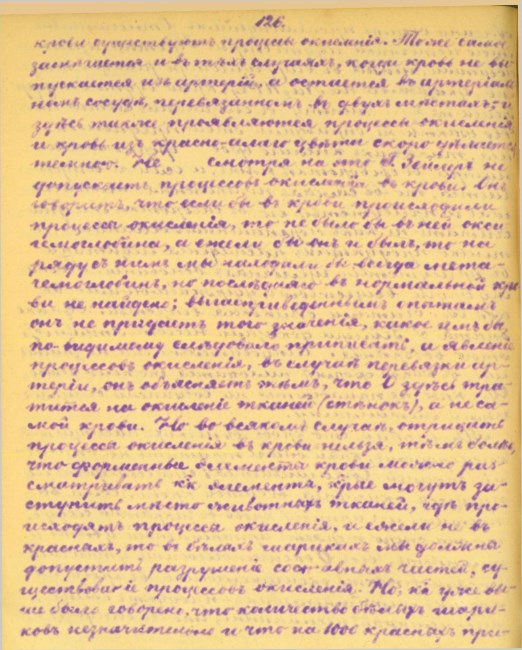 126.
крови существуютъ процессы окисленія. То же самое
замѣчается и въ тѣхъ случаяхъ, когда кровь не вы-
пускается изъ артерій, а остается въ артеріаль-
номъ сосудѣ, перевязанномъ въ двухъ мѣстахъ; и
здѣсь также проявляются процессы окисленія,
и кровь изъ красно-алаго цвѣта скоро дѣлается
темною. Не смотря на это Зейлеръ не
допускаетъ процессовъ окисленія въ крови. Онъ
говоритъ, что если бы въ крови происходили
процессы окисленія, то не было бы въ ней окси-
гемоглобина, а ежели бы онъ и былъ, то на
ряду съ нимъ мы находили бы всегда мета-
гемоглобинъ, но послѣдняго въ нормальной кро-
ви не найдено; опытамъ
онъ не придаетъ того значенія, какое имъ бы,
по видимому слѣдовало придавать, и явленія
процессовъ окисленія, въ случаѣ перевязки ар-
теріи, онъ объясняетъ тѣмъ, что О здѣсь тра-
тится на окисленіе тканей (стѣнокъ), а не са-
мой крови. Но во всякомъ случаѣ, отрицать
процессы окисленія въ крови нельзя, тѣмъ болѣе,
что форменные элементы крови можно раз-
сматривать кк элементы, крые могутъ за-
ступить мѣсто животныхъ тканей, гдѣ про-
исходятъ процессы окисленія, и ежели не въ
красныхъ, то въ бѣлыхъ шарикахъ мы должны
допустить разрушеніе составныхъ частей, су-
ществованіе процессовъ окисленія. Но, кк уже вы-
ше было говорено, что количество бѣлыхъ шари-
ковъ незначительно и что на 1000 красныхъ при-